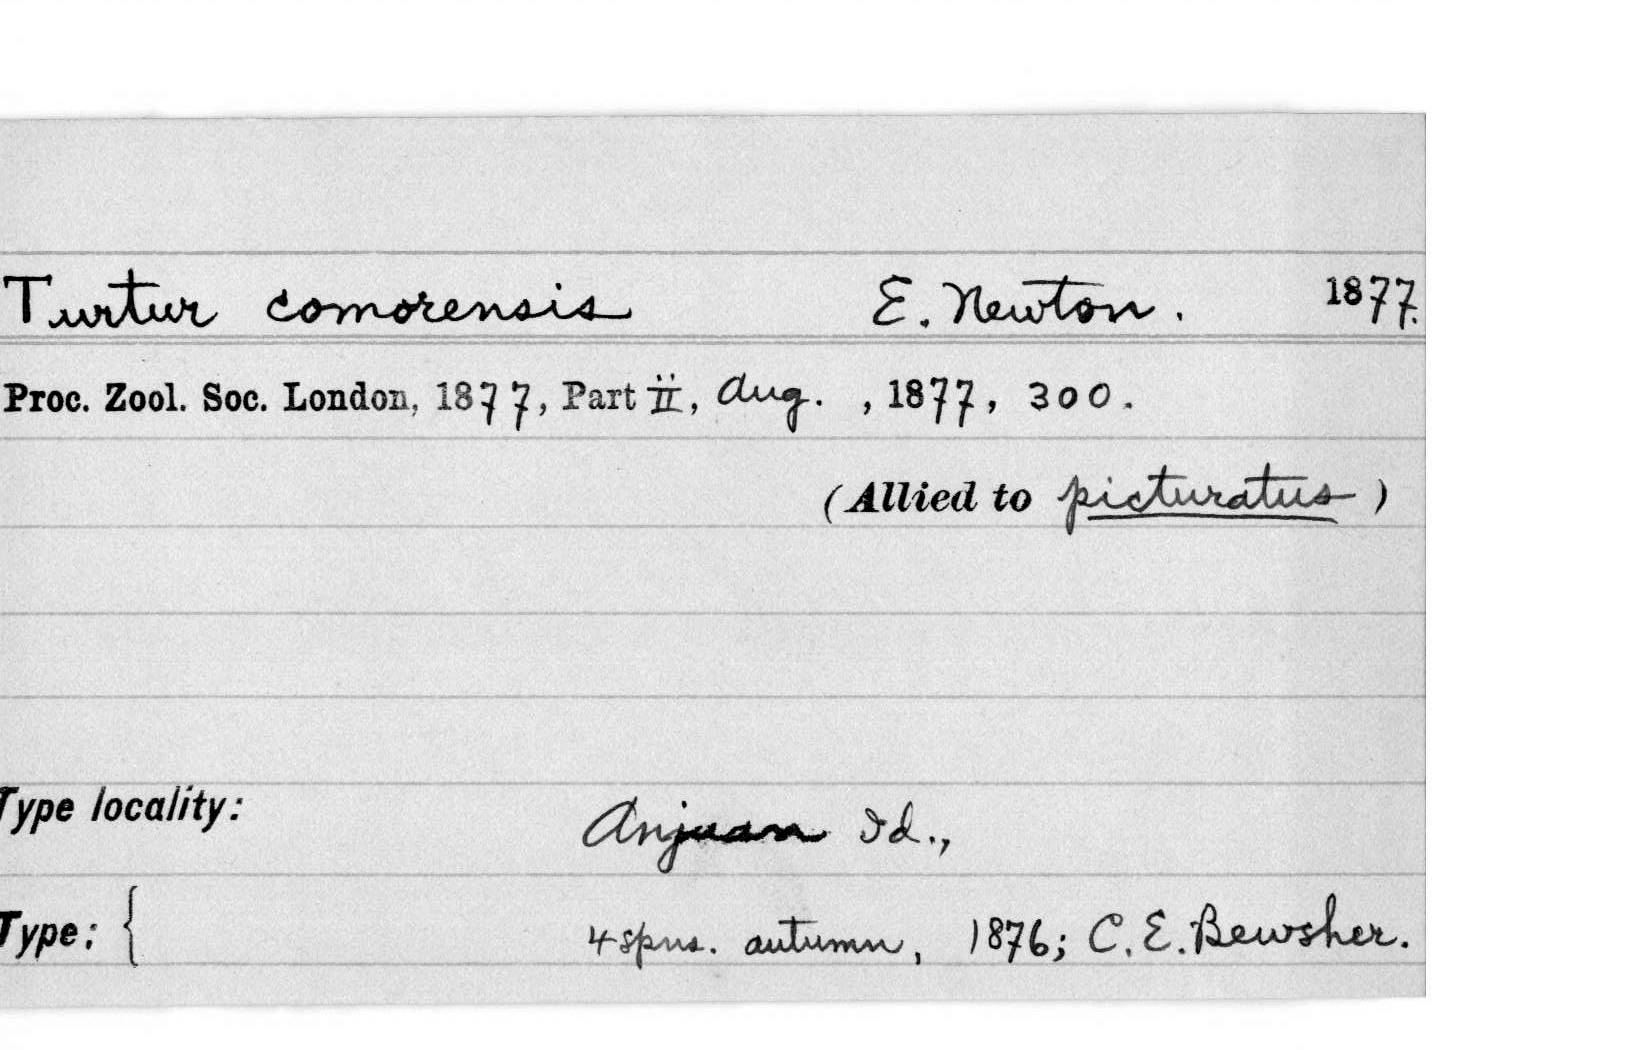 Turtur comorensis E. Newton. 1877.
Proc. Zool. Soc. London, 1877, Part ii, Aug. , 1877, 300.
(Allied to picturatus)
Type locality: Anjuan Id.,
Type: { 4 spns. autumn, 1876; C. E. Bewsher.